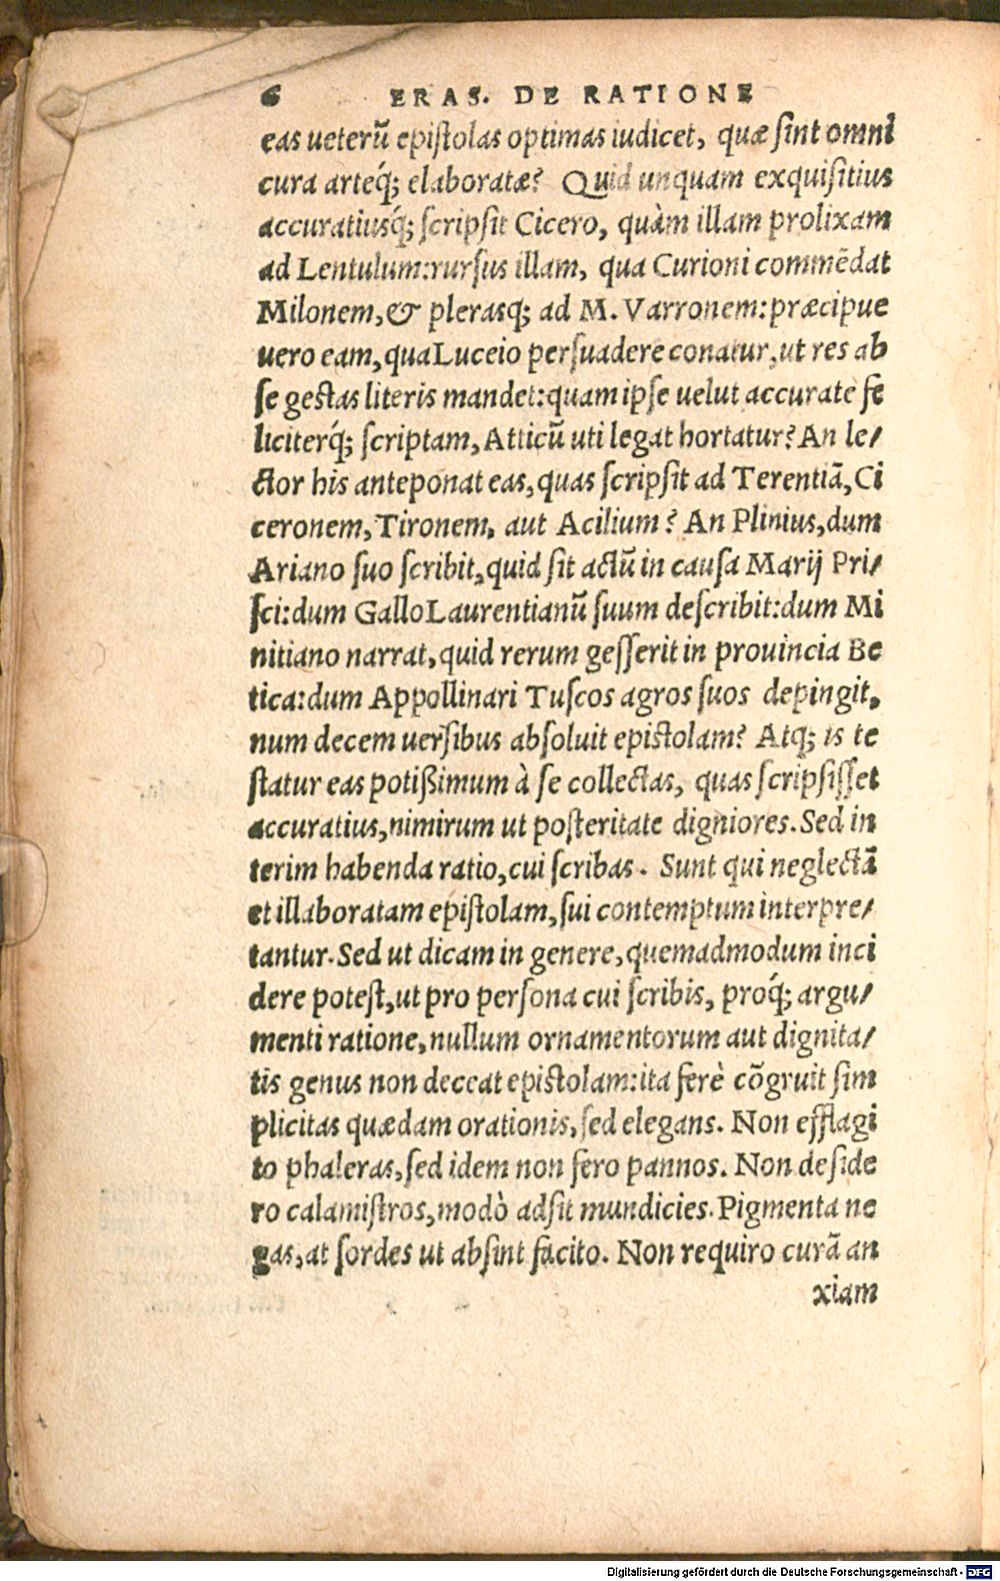 6 ERAS. DE RATIONE
eas ueterū epiſtolas optimas iudicet, quæ ſint omni
cura arteq́; elaboratæ? Quid unquam exquiſitius
accuratiusq́; ſcripſit Cicero, quàm illam prolixam
ad Lentulum:rurſus illam, qua Curioni commẽdat
Milonem,& plerasq; ad M. Varronem:præcipue
uero eam,qua Luceio perſuadere conatur,ut res ab
ſe geſtas literis mandet:quam ipſe uelut accurate fe
liciterq́; ſcriptam, Atticū uti legat hortatur? An le/
ctor his anteponat eas,quas ſcripſit ad Terentiã, Ci
ceronem,Tironem, aut Acilium? An Plinius,dum
Ariano ſuo ſcribit,quid ſit actū in cauſa Marij Pri/
ſci:dum Gallo Laurentianū ſuum deſcribit:dum Mi
nitiano narrat,quid rerum geſſerit in prouincia Be
tica:dum Appollinari Tuſcos agros ſuos depingit,
num decem uerſibus abſoluit epiſtolam? Atq; is te
ſtatur eas potißimum à ſe collectas, quas ſcripſiſſet
accuratius,nimirum ut poſteritate digniores. Sed in
terim habenda ratio,cui ſcribas. Sunt qui neglectã
et illaboratam epiſtolam,ſui contemptum interpre/
tantur. Sed ut dicam in genere,quemadmodum inci
dere poteſt,ut pro perſona cui ſcribis, proq́; argu/
menti ratione,nullum ornamentorum aut dignita/
tis genus non deceat epiſtolam:ita ferè cõgruit ſim
plicitas quædam orationis,ſed elegans. Non efflagi
to phaleras,ſed idem non fero pannos. Non deſide
ro calamiſtros,modò adſit mundicies. Pigmenta ne
gas,at ſordes ut abſint facito. Non requiro curã an
xiam
Digitalisierung gefördert durch die Deutsche Forschungsgemeinschaft - DFG